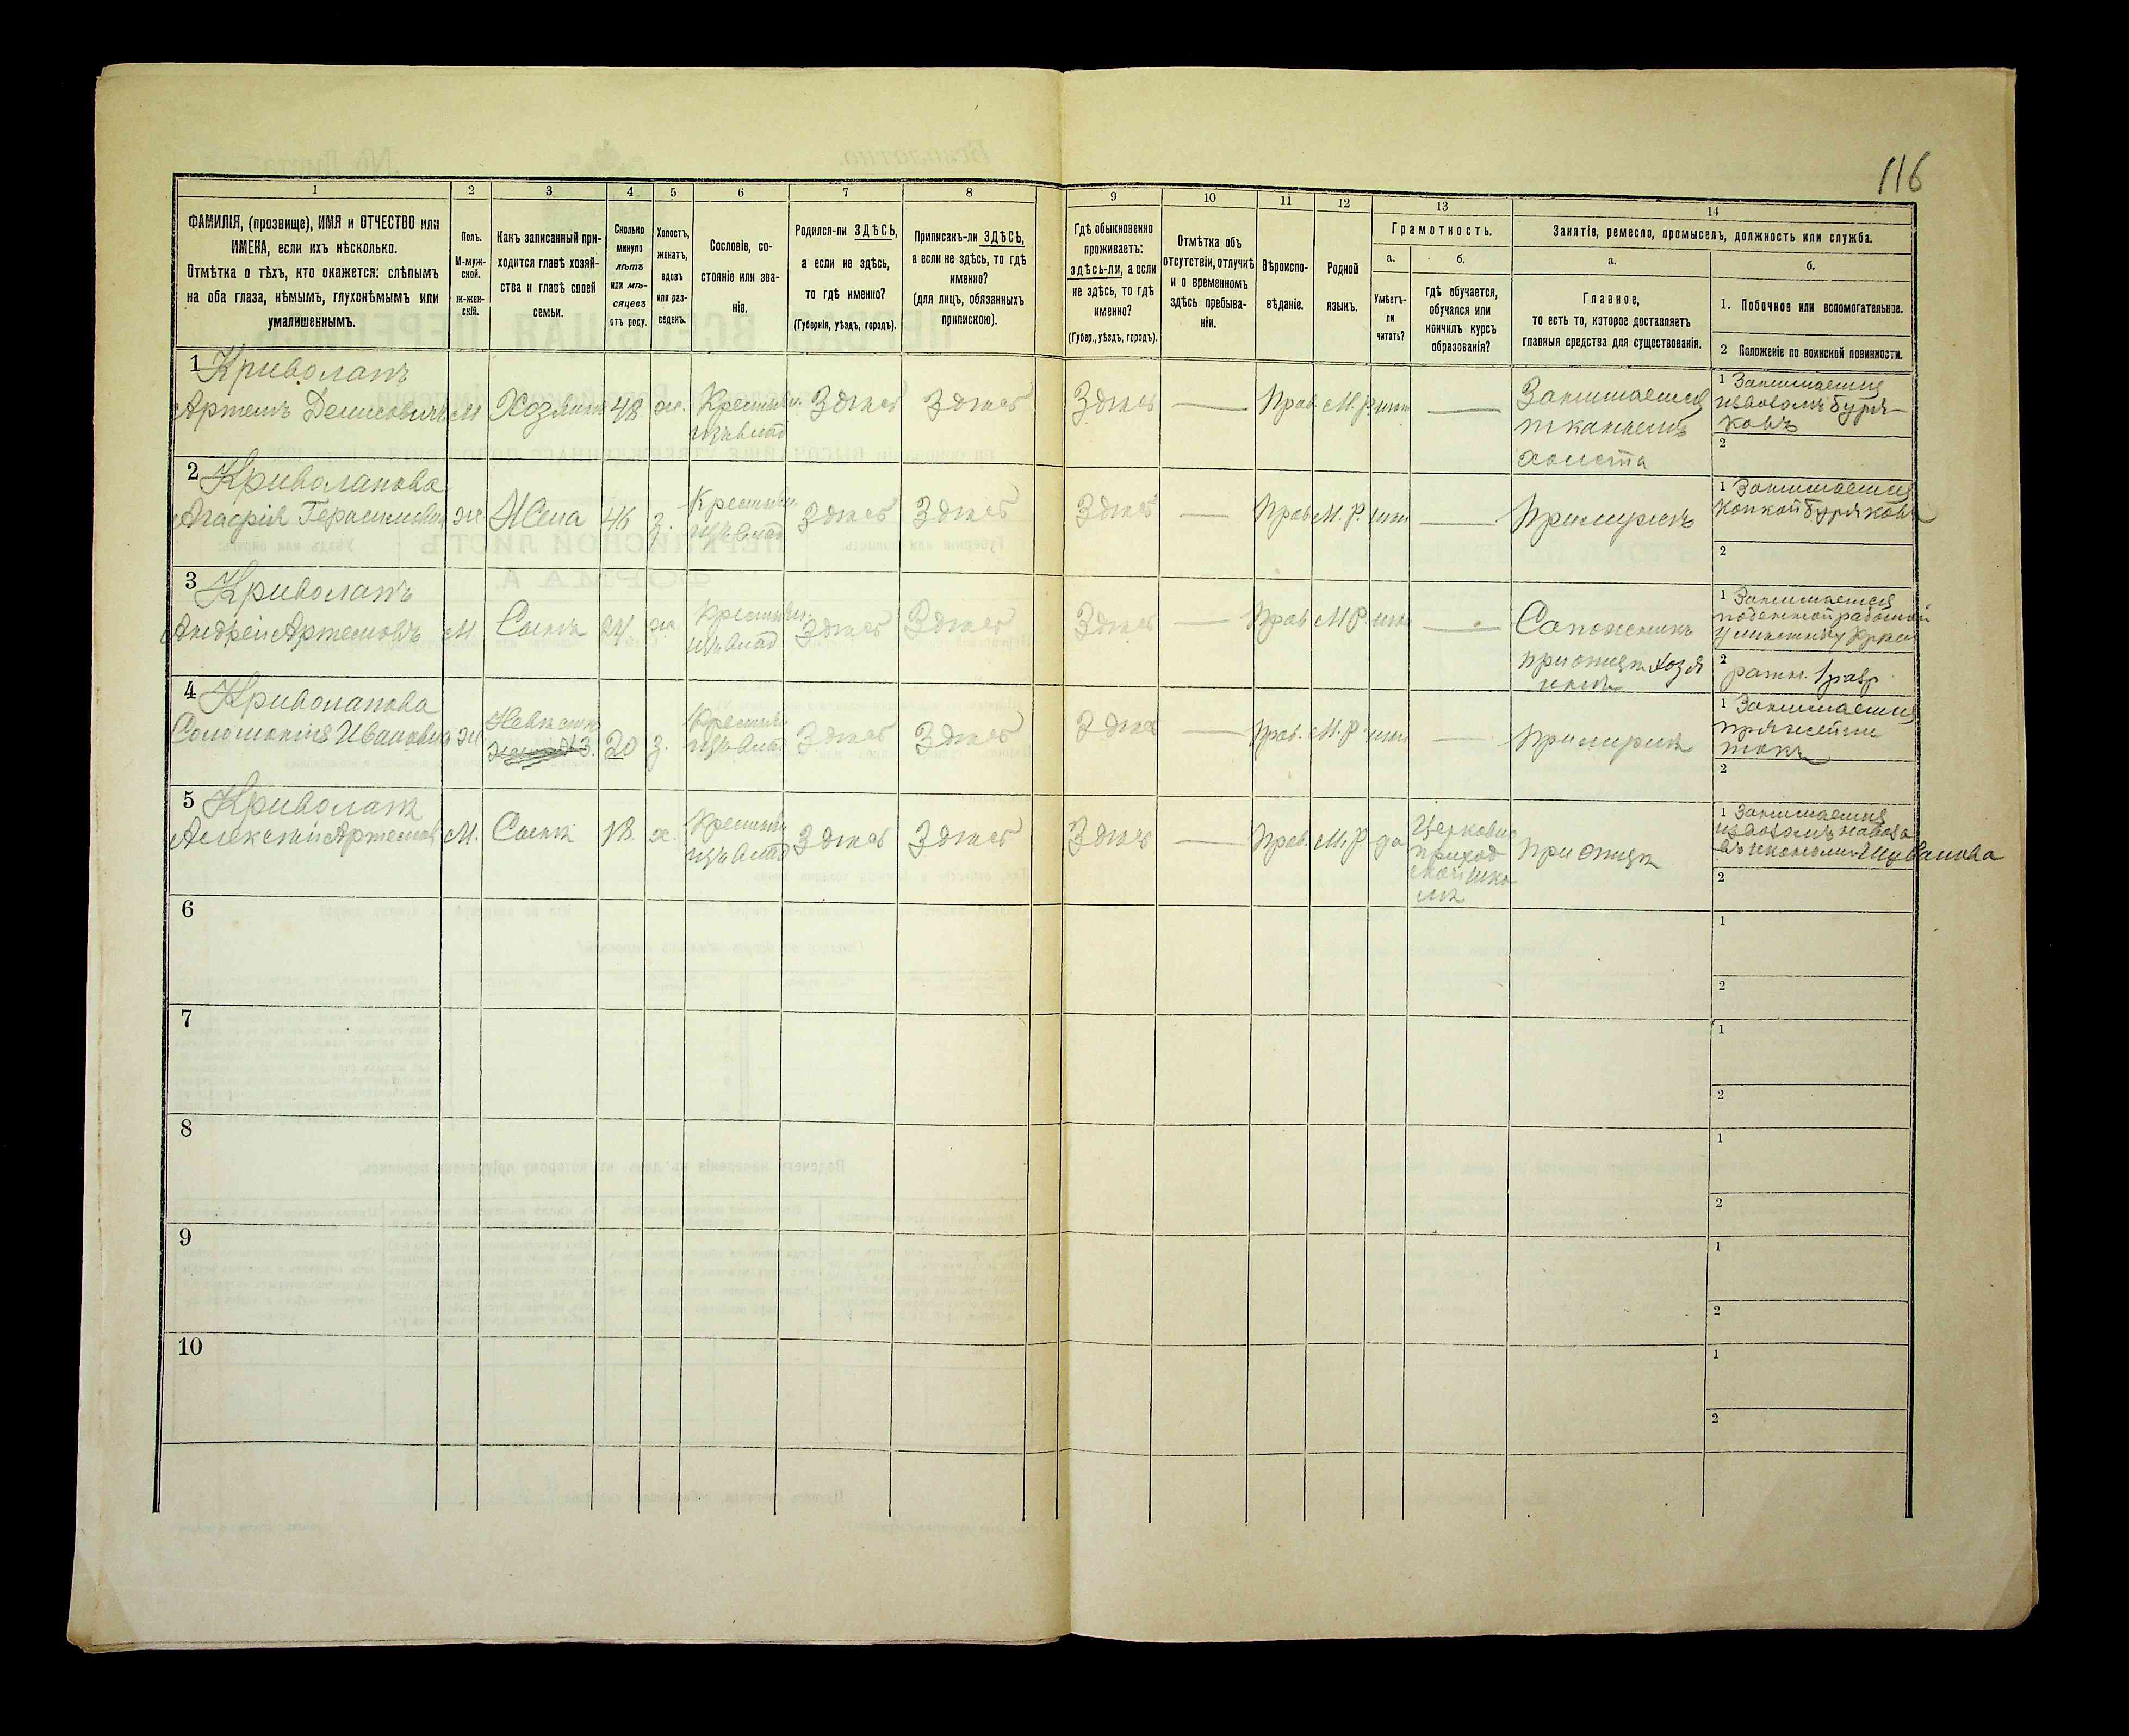 116
1 2 3 4 5 6 7 8 9 10 11 12 13 14
ФАМИЛІЯ, (прозвище), ИМЯ и ОТЧЕСТВО или
ИМЕНА, если ихъ нѣсколько.
Отмѣтка о тѣхъ, кто окажется: слѣпымъ
на оба глаза, нѣмымъ, глухонѣмымъ или
умалишеннымъ.
Полъ.
М-муж-
ской.
ж-жен-
скій.
Какъ записанный при-
ходится главѣ хозяй-
ства и главѣ своей
семьи.
Сколько
минуло
лѣтъ
или мѣ-
сяцевъ
отъ роду.
Холостъ,
женатъ,
вдовъ
или раз-
веденъ.
Сословіе, со-
стояніе или зва-
ніе.
Родился-ли ЗДѢСЬ,
а если не здѣсь,
то гдѣ именно?
(Губернія, уѣздъ, городъ).
Приписанъ-ли ЗДѢСЬ,
а если не здѣсь, то гдѣ
именно?
(для лицъ, обязанныхъ
припискою).
Гдѣ обыкновенно
проживаетъ:
здѣсь-ли, а если
не здѣсь, то гдѣ
именно?
(Губер., уѣздъ, городъ).
Отмѣтка объ
отсутствіи, отлучкѣ
и о временномъ
здѣсь пребыва-
ніи.
Вѣроиспо-
вѣданіе.
Родной
языкъ.
Грамотность.
а.
Умѣетъ-
ли
читать?
б.
гдѣ обучается,
обучался или
кончилъ курсъ
образованія?
Занятіе, ремесло, промыселъ, должность или служба.
а.
Главное,
то есть то, которое доставляетъ
главныя средства для существованія.
б.
1. Побочное или вспомогательное.
2 Положеніе по воинской повинности.
1 Криволапъ
Артемъ Денисовичъ М Хозяинъ 48 ж. Крестьян. изъ влад Здѣсь Здѣсь Здѣсь — Прав. М.Р. нѣтъ — Занимается
тканьемъ
холста
1 Занимается
извозомъ буря-
ковъ
2
2 Криволапова
Агафія Герасимовна ж Жена 46 з. Крестьян. изъ влад Здѣсь Здѣсь Здѣсь — Прав М.Р. нѣтъ — При мужѣ
1 Занимается
Копкой буряковъ
2
3 Криволапъ
Андрей Артемовъ М. Сынъ 24 ж. Крестьян. изъ влад Здѣсь Здѣсь Здѣсь — Прав М.Р. нѣтъ — Сапожникъ
при отцѣ хозя
инъ
1 Занимается
поденной работой
2 ратн. 1 разр
4 Криволапова
Соломонія Ивановна ж Невѣстка 20 з. Крестьян изъ влад Здѣсь Здѣсь Здѣсь — Прав. М.Р. нѣтъ — При мужѣ
1 Занимается
пряжей ни
токъ
2
5 Криволапъ
Алексѣй Артемов М. Сынъ 18 х. Крестьян изъ влад Здѣсь Здѣсь Здѣсь — Прав. М.Р да Церковно
приход
ской шко
лѣ
при отцѣ
1 Занимается
извозомъ навоза
въ економіи Шувалова
2
6 1
2
7 1
2
8 1
2
9 1
2
10 1
2